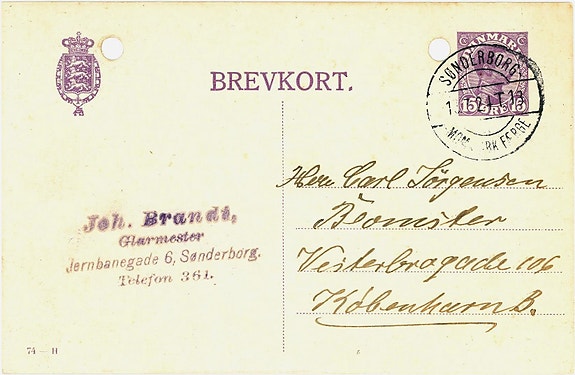 DANMARK
15 ØRE 15
SØNDERBORG
BREVKORT.
Joh. Brandt,
Glarmester
Jernbanegade 6, Sønderborg.
Telefon 361.
Herr Carl Jørgensen
Vesterbrogade 106
København B.
74 - H